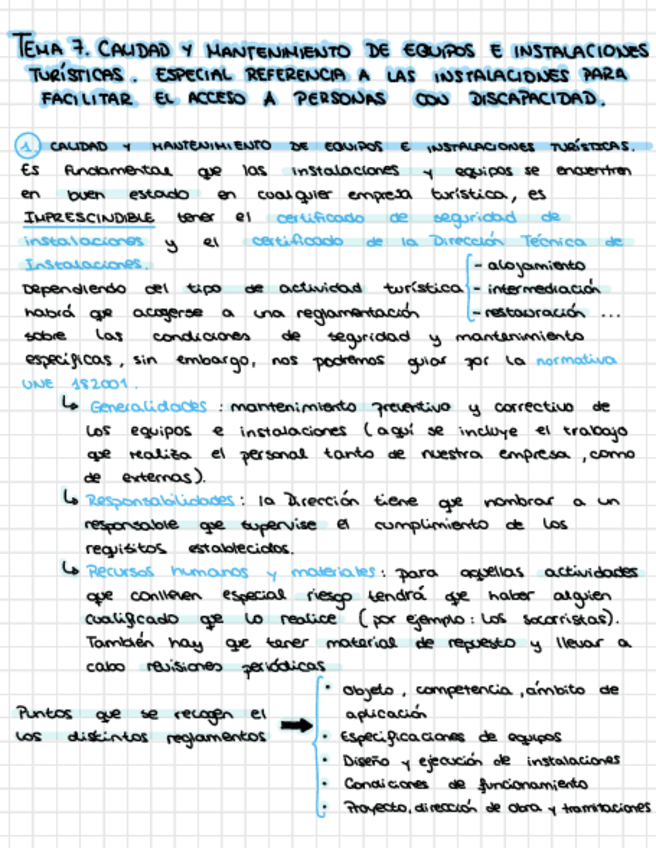 TEMA 7. CALIDAD Y MANTENIMIENTO DE EQUIPOS E INSTALACIONES
TURÍSTICAS. ESPECIAL REFERENCIA A LAS INSTALACIONES PARA
FACILITAR EL ACCESO A PERSONAS CON DISCAPACIDAD.
1 CALIDAD Y MANTENIMIENTO DE EQUIPOS E INSTALACIONES TURÍSTICAS.
Es fundamental que las instalaciones y equipos se encuentren
en buen estado en cualquier empresa turística, es
IMPRESCINDIBLE tener el certificado de seguridad de
instalaciones y el certificado de la Dirección Técnica de
Instalaciones.
- alojamiento
Dependiendo del tipo de actividad turística - intermediación
habrá que acogerse a una reglamentación - restauración ...
sobre las condiciones de seguridad y mantenimiento
específicas, sin embargo, nos podremos guiar por la normativa
UNE 182001.
↳ Generalidades: mantenimiento preventivo y correctivo de
los equipos e instalaciones (aquí se incluye el trabajo
que realiza el personal tanto de nuestra empresa, como
de externas).
↳ Responsabilidades: la Dirección tiene que nombrar a un
responsable que supervise el cumplimiento de los
requisitos establecidos.
↳ Recursos humanos y materiales: para aquellas actividades
que conlleven especial riesgo tendrá que haber alguien
cualificado que lo realice (por ejemplo: los socorristas).
También hay que tener material de repuesto y llevar a
cabo revisiones periódicas
• Objeto, competencia, ámbito de
Puntos que se recogen el aplicación
los distintos reglamentos • Especificaciones de equipos
• Diseño y ejecución de instalaciones
• Condiciones de funcionamiento
• Proyecto, dirección de obra y tramitaciones